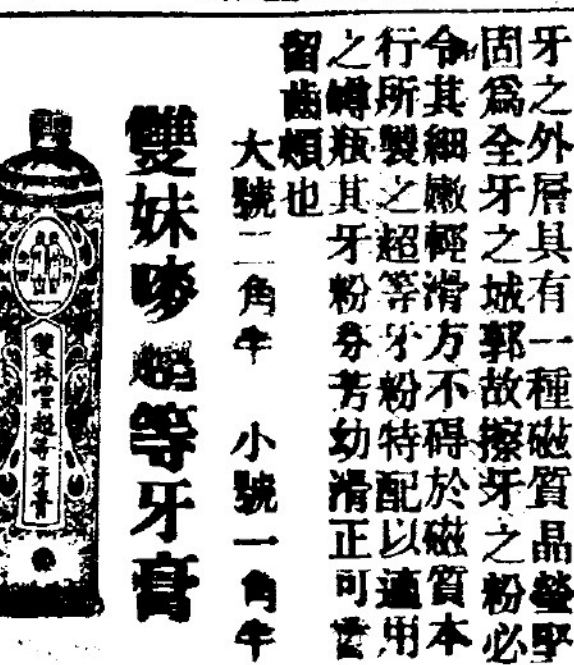 牙之外層具有一種磁質晶瑩堅
固爲全牙之城郭故擦牙之粉必
令其細嫩輕滑方不碍於磁質本
行所製之超等牙粉特配以適用
之罇瓶其牙粉芬芳幼滑正可
留齒頰也
大號二角半 小號一角半
雙妹嘜超等牙膏
雙妹嘜超等牙膏